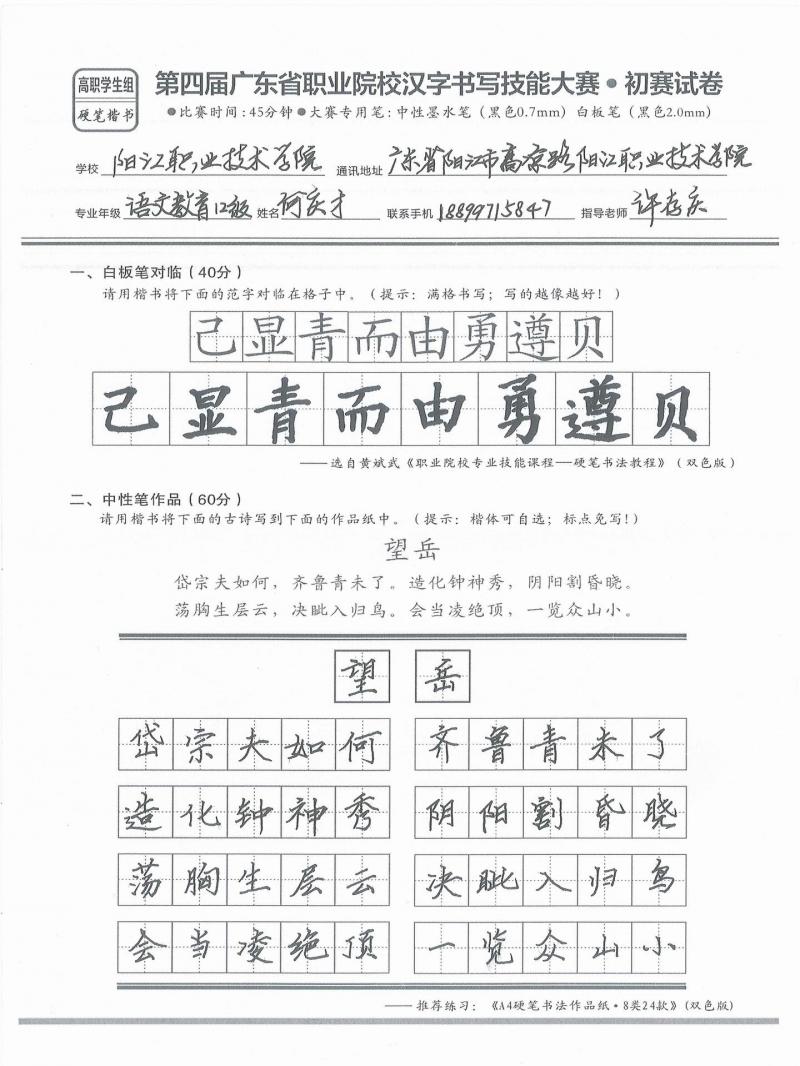 高职学生组
硬笔楷书
第四届广东省职业院校汉字书写技能大赛•初赛试卷
●比赛时间:45分钟●大赛专用笔:中性墨水笔(黑色0.7mm) 白板笔(黑色2.0mm)
学校 阳江职业技术学院 通讯地址 广东省阳江市高凉路阳江职业技术学院
专业年级 语文教育12级 姓名 何庆才 联系手机 18899715847 指导老师 许存庆
一、白板笔对临(40分)
请用楷书将下面的范字对临在格子中。(提示:满格书写;写的越像越好!)
己显青而由勇遵贝
己显青而由勇遵贝
——选自黄斌武《职业院校专业技能课程—硬笔书法教程》(双色版)
二、中性笔作品(60分)
请用楷书将下面的古诗写到下面的作品纸中。(提示:楷体可自选;标点免写!)
望岳
岱宗夫如何,齐鲁青未了。造化钟神秀,阴阳割昏晓。
荡胸生层云,决眦入归鸟。会当凌绝顶,一览众山小。
望岳
岱宗夫如何 齐鲁青未了
造化钟神秀 阴阳割昏晓
荡胸生层云 决眦入归鸟
会当凌绝顶 一览众山小
——推荐练习:《A4硬笔书法作品纸·8类24款》(双色版)